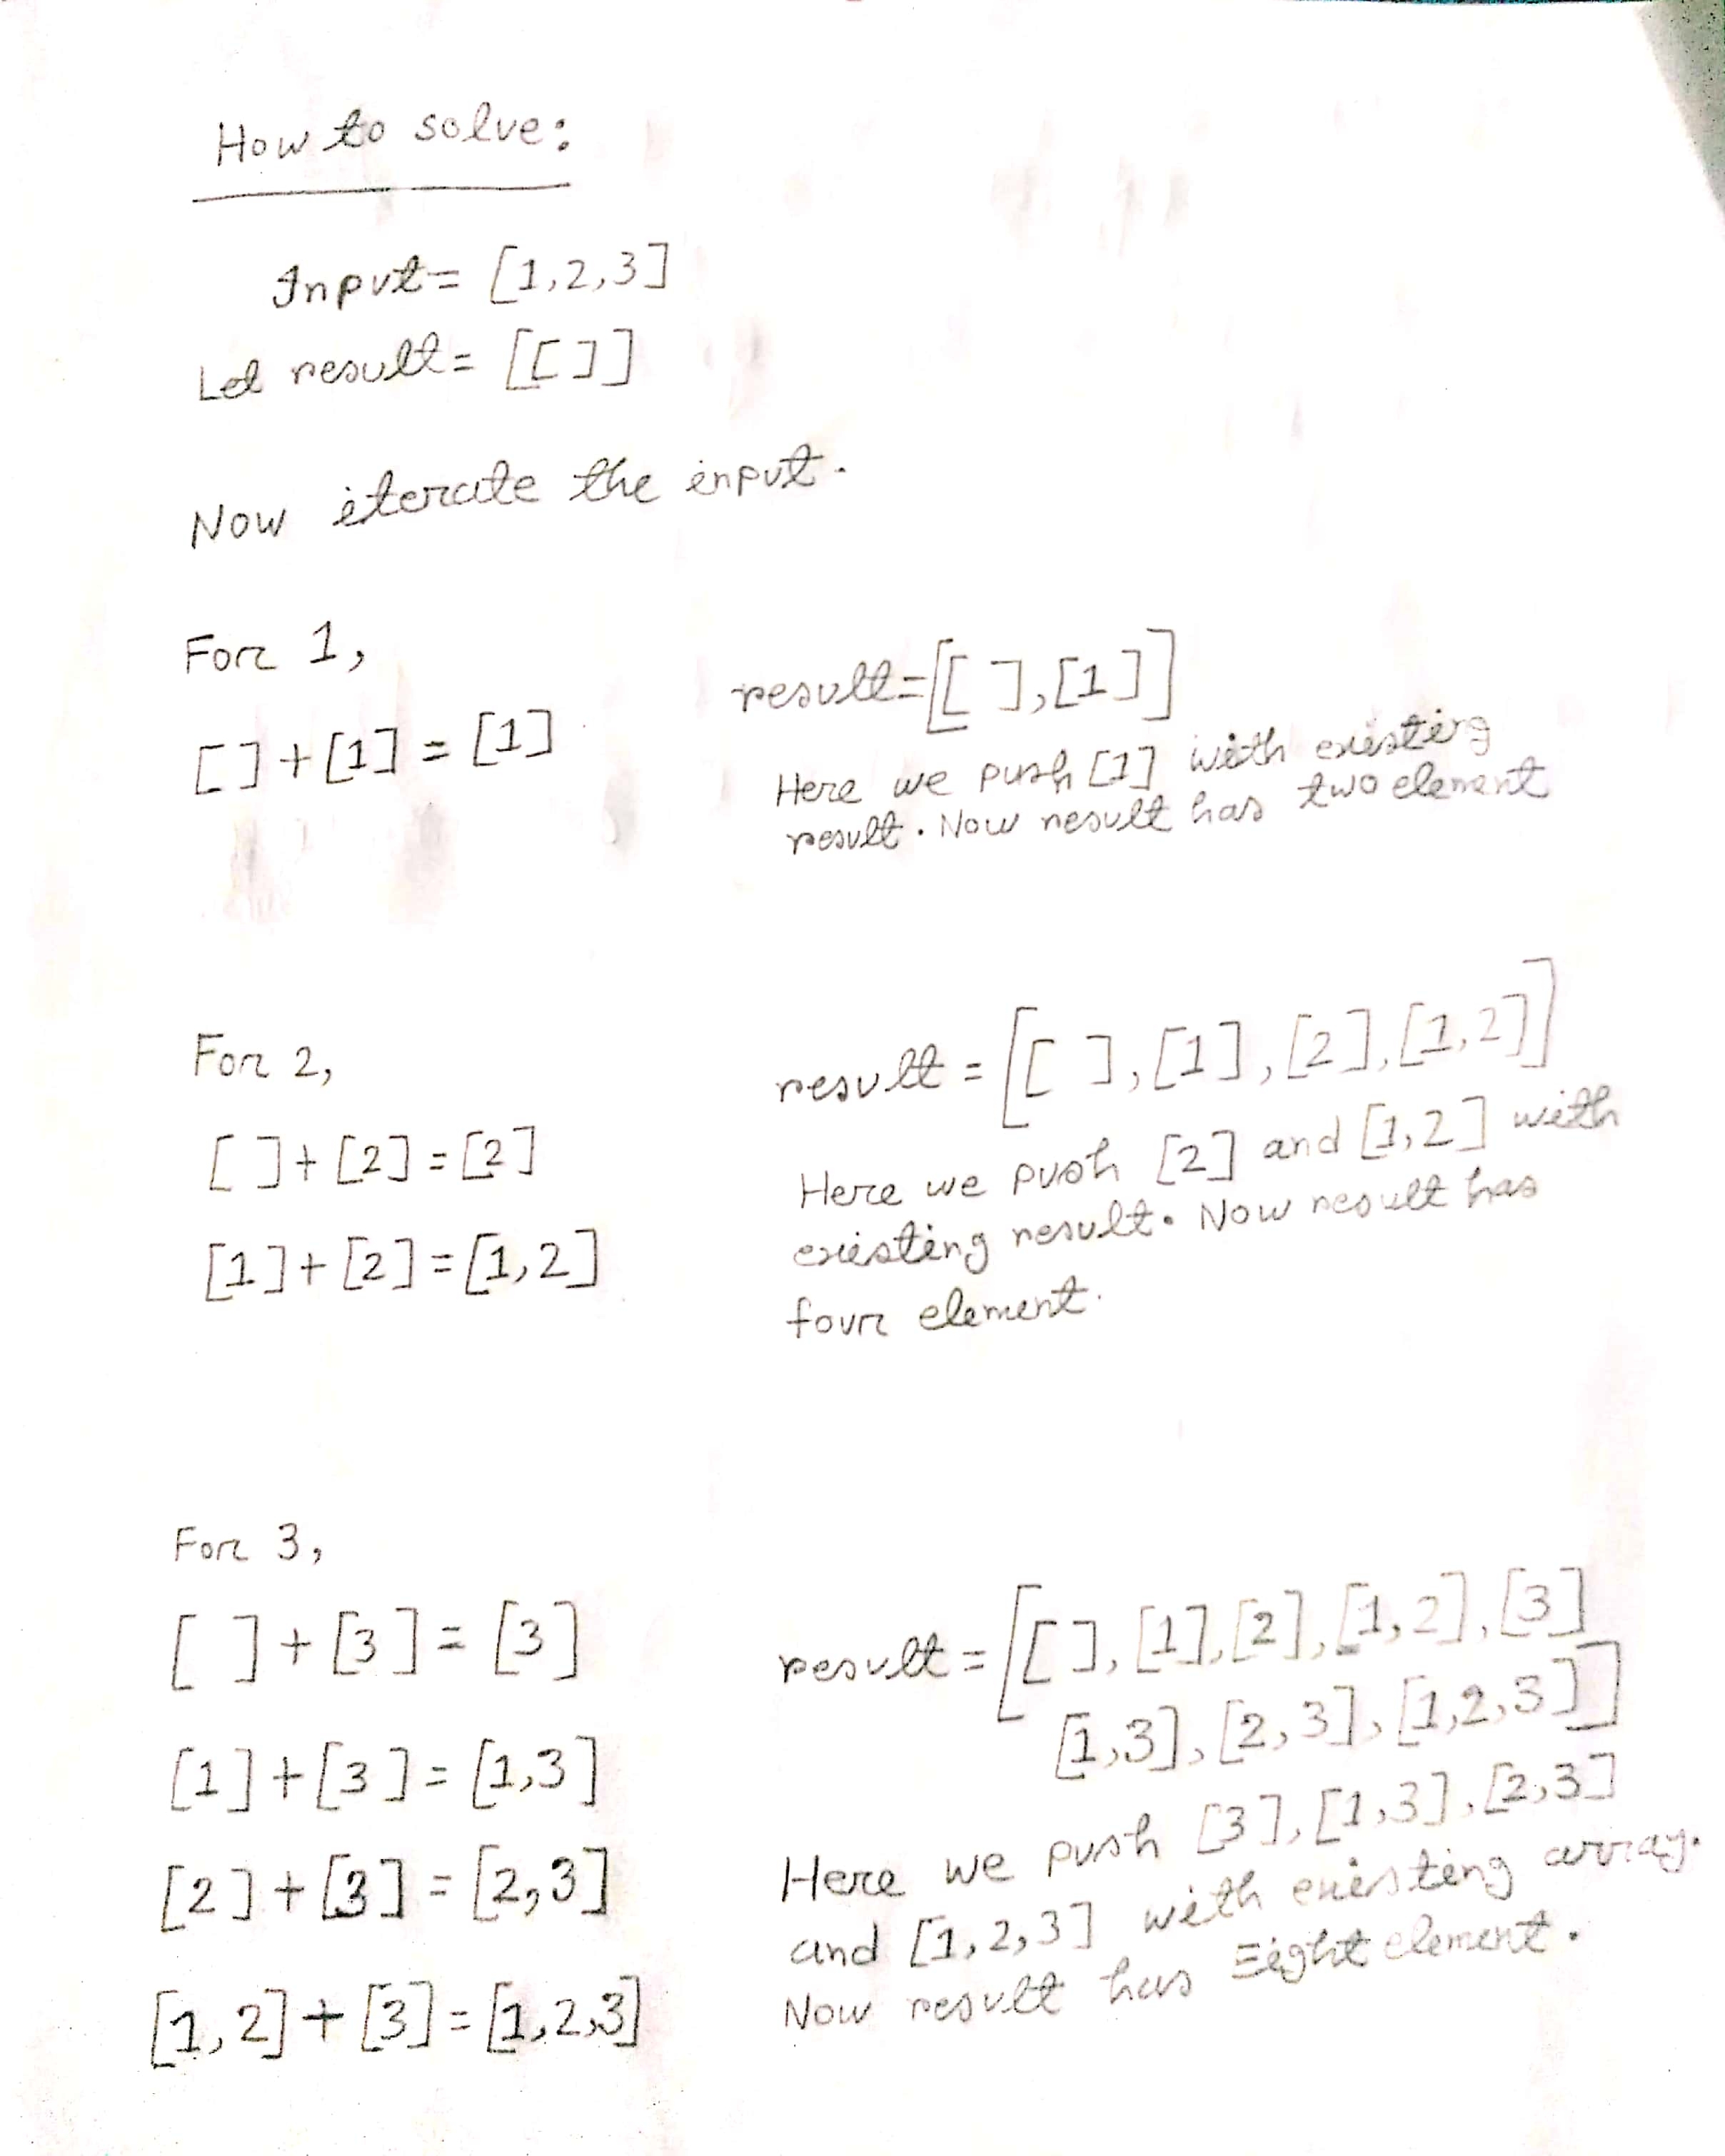 How to solve:
Input= [1,2,3]
Let result= [[ ]]
Now iterate the input.
For 1,
[ ]+[1] = [1]
result=[[ ],[1]]
Here we push [1] with existing
result. Now result has two element
For 2,
[ ]+[2]=[2]
[1]+[2]=[1,2]
result = [[ ],[1],[2],[1,2]]
Here we push [2] and [1,2] with
existing result. Now result has
four element.
For 3,
[ ]+[3]= [3]
[1]+[3]= [1,3]
[2]+[3] = [2,3]
[1,2]+[3]=[1,2,3]
result = [[ ],[1],[2],[1,2],[3]
[1,3],[2,3],[1,2,3]]
Here we push [3],[1,3],[2,3]
and [1,2,3] with existing array.
Now result has Eight element.